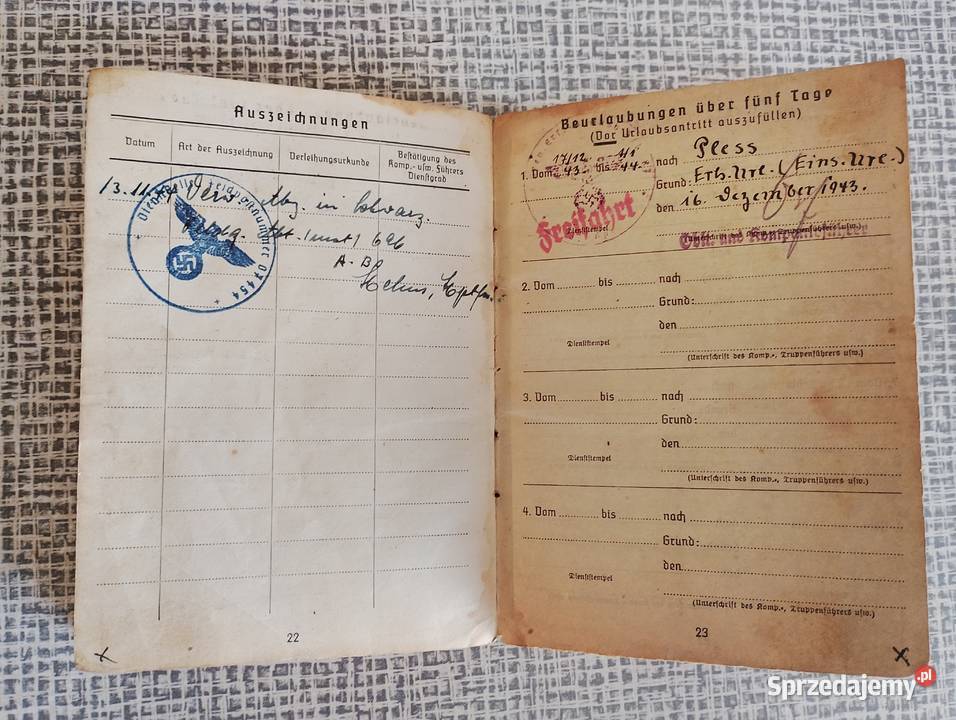 Auszeichnungen
Datum
Art der Auszeichnung
Verleihungsurkunde
Bestätigung des
Komp.- usw. Führers
Dienstgrad
Verw. Abz. in Schwarz.
696
22
Beurlaubungen über fünf Tage
(Vor Urlaubsantritt auszufüllen)
1. Vom 17/12. 43. bis 4/1 44. nach Pless
Grund: Erh. Url. (Eins. Url.)
den 16. Dezember 1943.
Freifahrt
Dienststempel
Obl. und Kompanieführer
2. Vom bis nach
Grund:
den
Dienststempel
(Unterschrift des Komp.-, Truppenführers usw.)
3. Vom bis nach
Grund:
den
Dienststempel
(Unterschrift des Komp.-, Truppenführers usw.)
4. Vom bis nach
Grund:
den
Dienststempel
(Unterschrift des Komp.-, Truppenführers usw.)
23
Sprzedajemy.pl